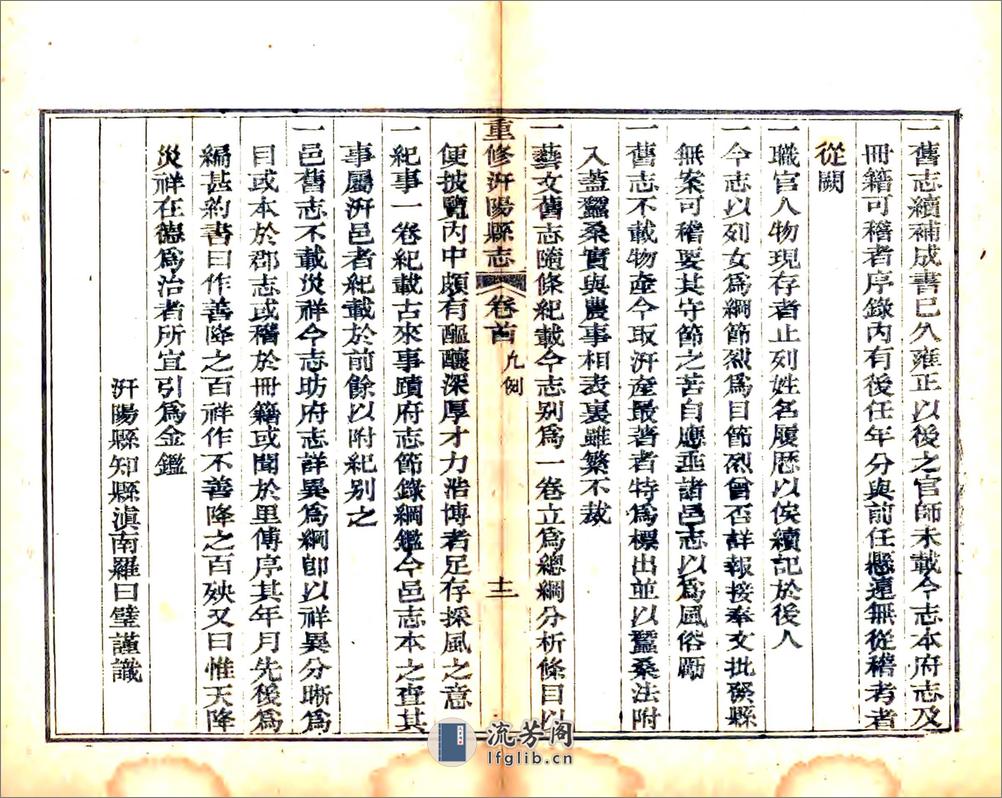 一舊志續補成書已久雍正以後之官師未載今志本府志及
冊籍可稽者序錄內有後任年分與前任懸遠無從稽考者
從闕
一職官人物現存者止列姓名履歷以俟續記於後人
一今志以列女爲綱節烈爲目節烈曾否詳報接奉文批孫縣
無案可稽要其守節之苦自應垂諸邑志以爲風俗勵
一舊志不載物產今取汧產最著者特爲標出並以蠶桑法附
入蓋蠶桑實與農事相表裏雖繁不裁
一藝文舊志隨條紀載今志别爲一卷立爲總綱分析條目以
重修汧陽縣志
卷首
凡例
十二
便披覽內中頗有醞釀深厚才力浩博者足存採風之意
一紀事一卷紀載古來事蹟府志節錄綱鑑今邑志本之查其
事屬汧邑者紀載於前餘以附紀别之
一邑舊志不載災祥今志昉府志詳異爲綱卽以祥異分晰爲
目或本於郡志或稽於冊籍或聞於里傳序其年月先後爲
編甚約書曰作善降之百祥作不善降之百殃又曰惟天降
災祥在德爲治者所宜引爲金鑑
汧陽縣知縣滇南羅曰璧謹識
流芳阁
lfglib.cn